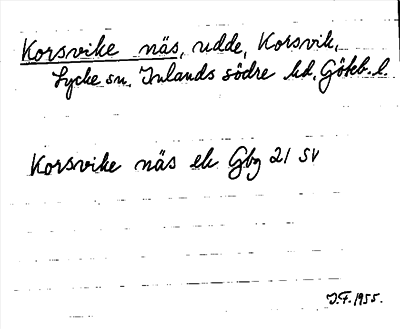 Korsvike näs, udde, Korsvik,
Lycke sn. Inlands södre hd. Göteb. l.
Korsvike näs ek Gbg 21 SV
J.F. 1955.